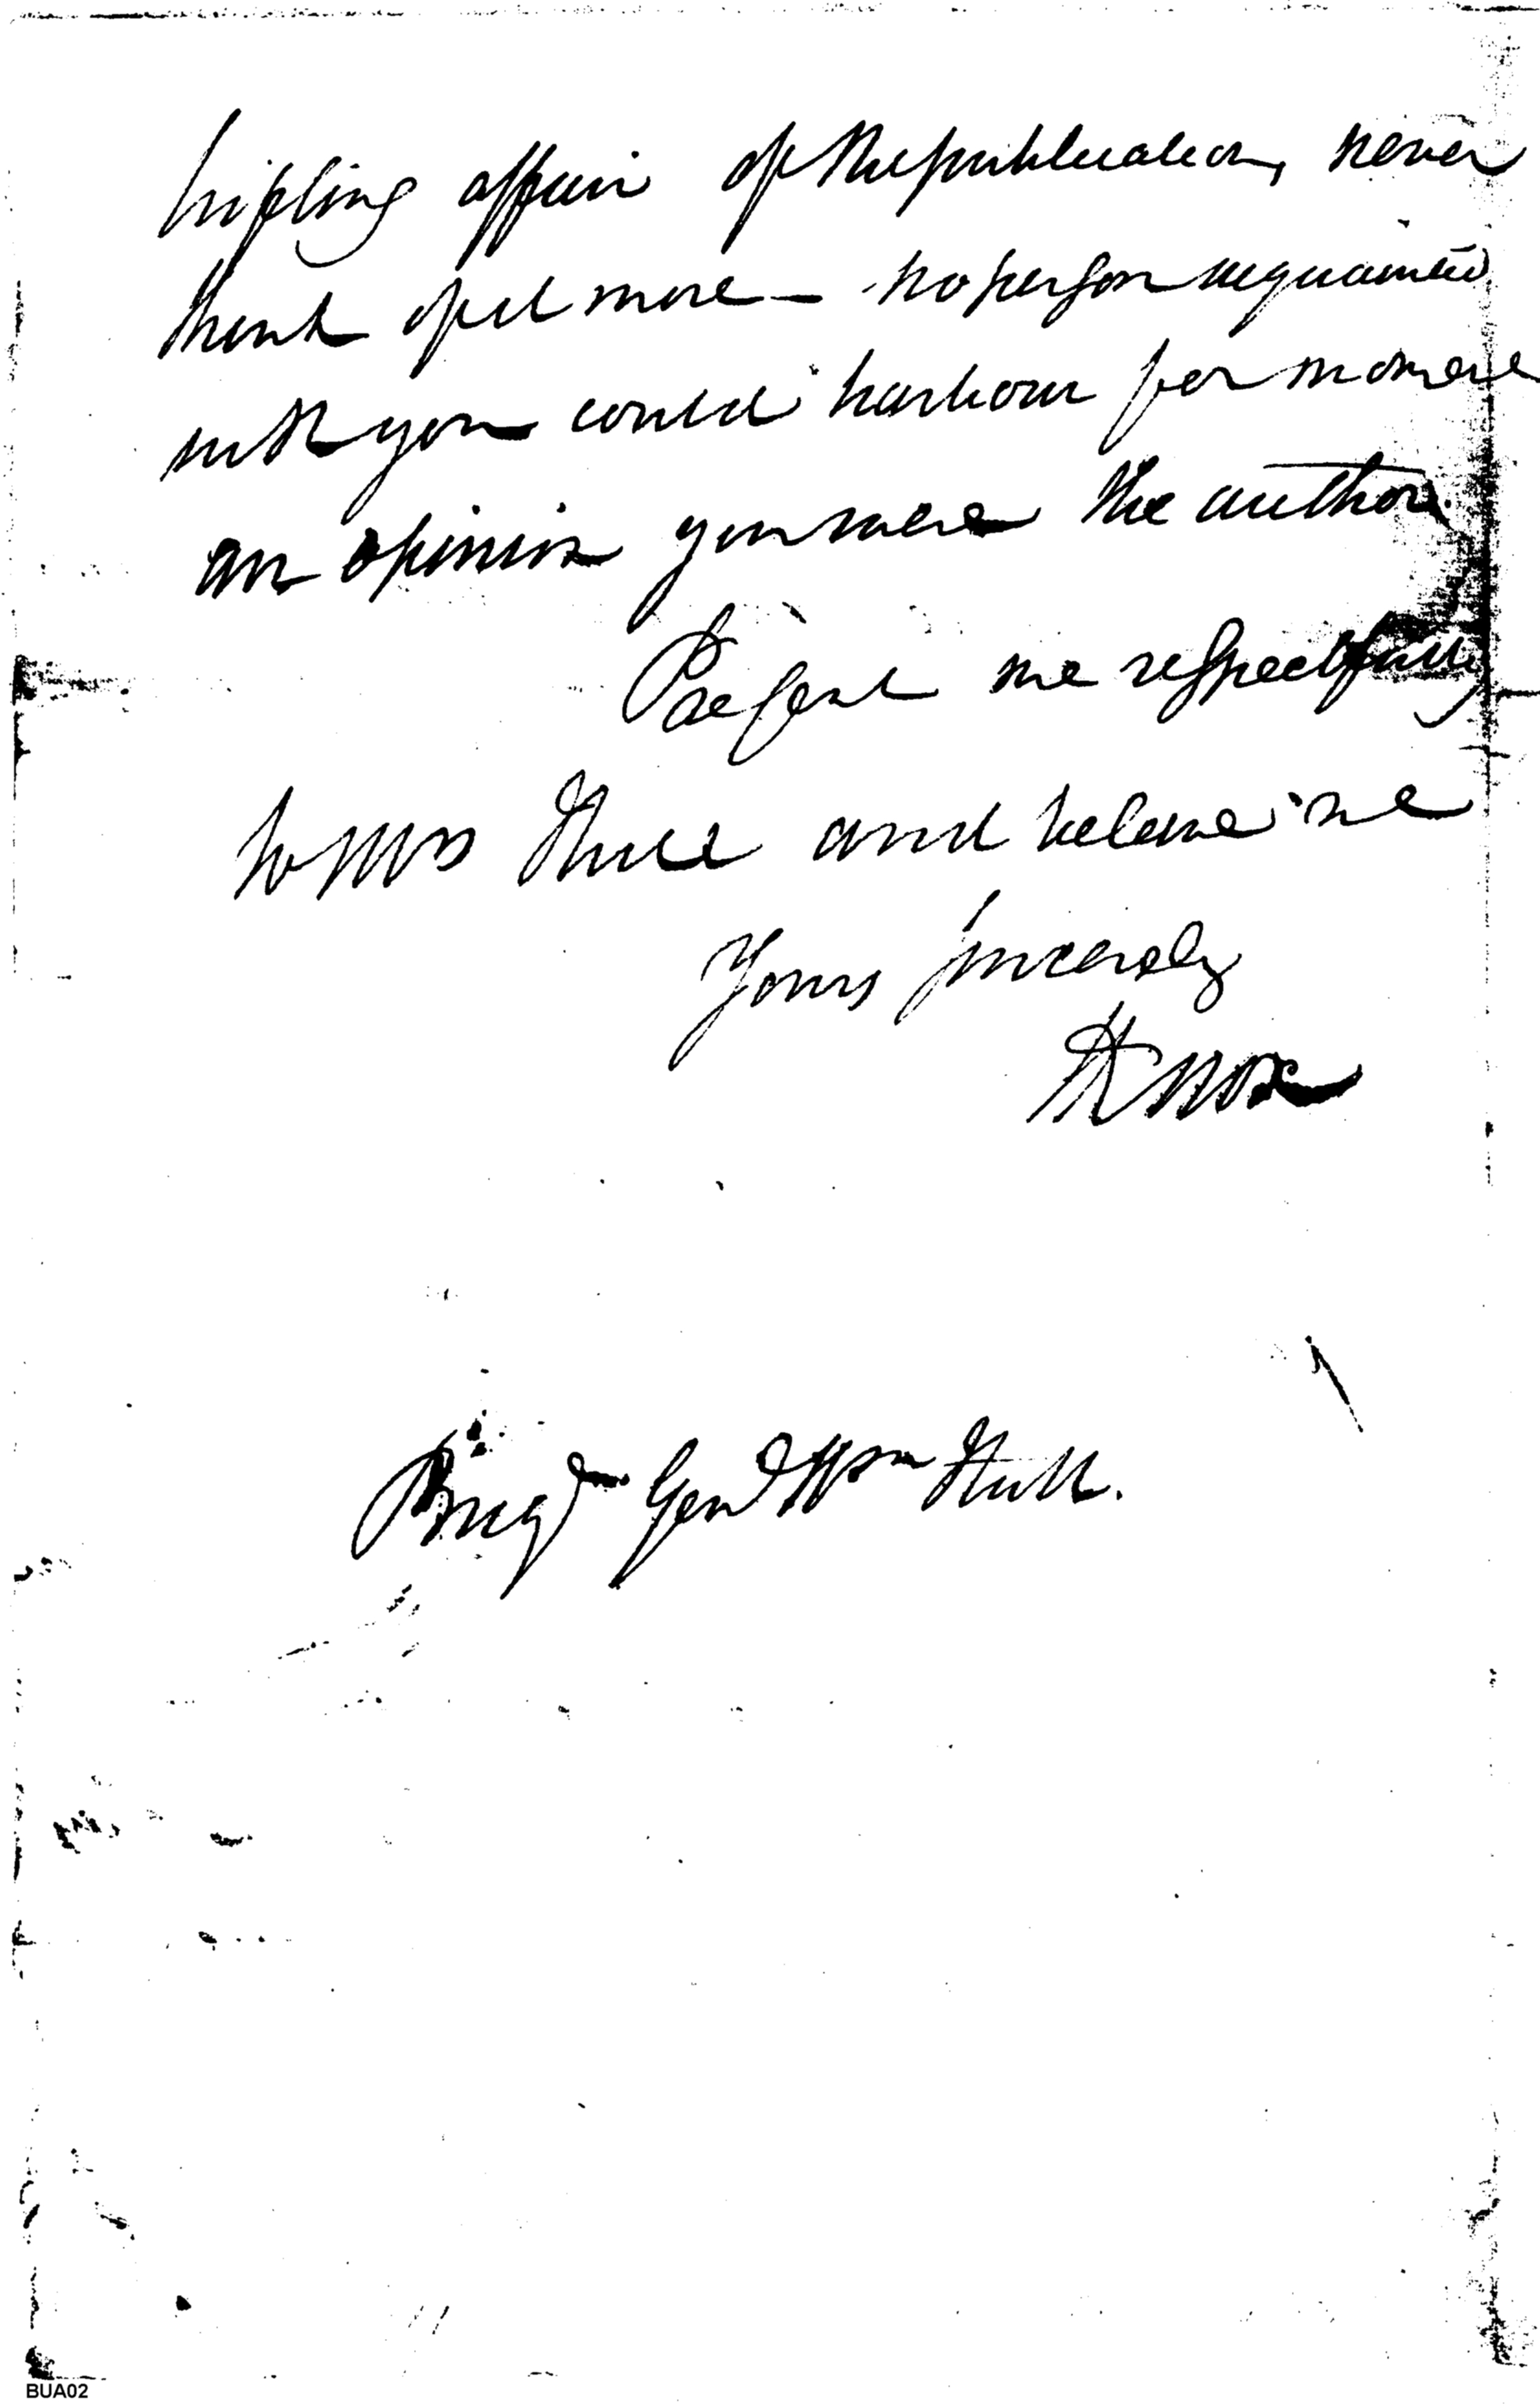 trifling affair of the publication, never
think of it more — no person acquainted
with you could harbour for moment
an opinion you were the author.
Present me respectfully
to Mrs Hull and believe me
Yours sincerely
HKnox
Brigr Genl Wm Hull.
BUA02